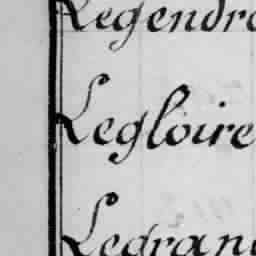 Legendre
Legloire
Legrand